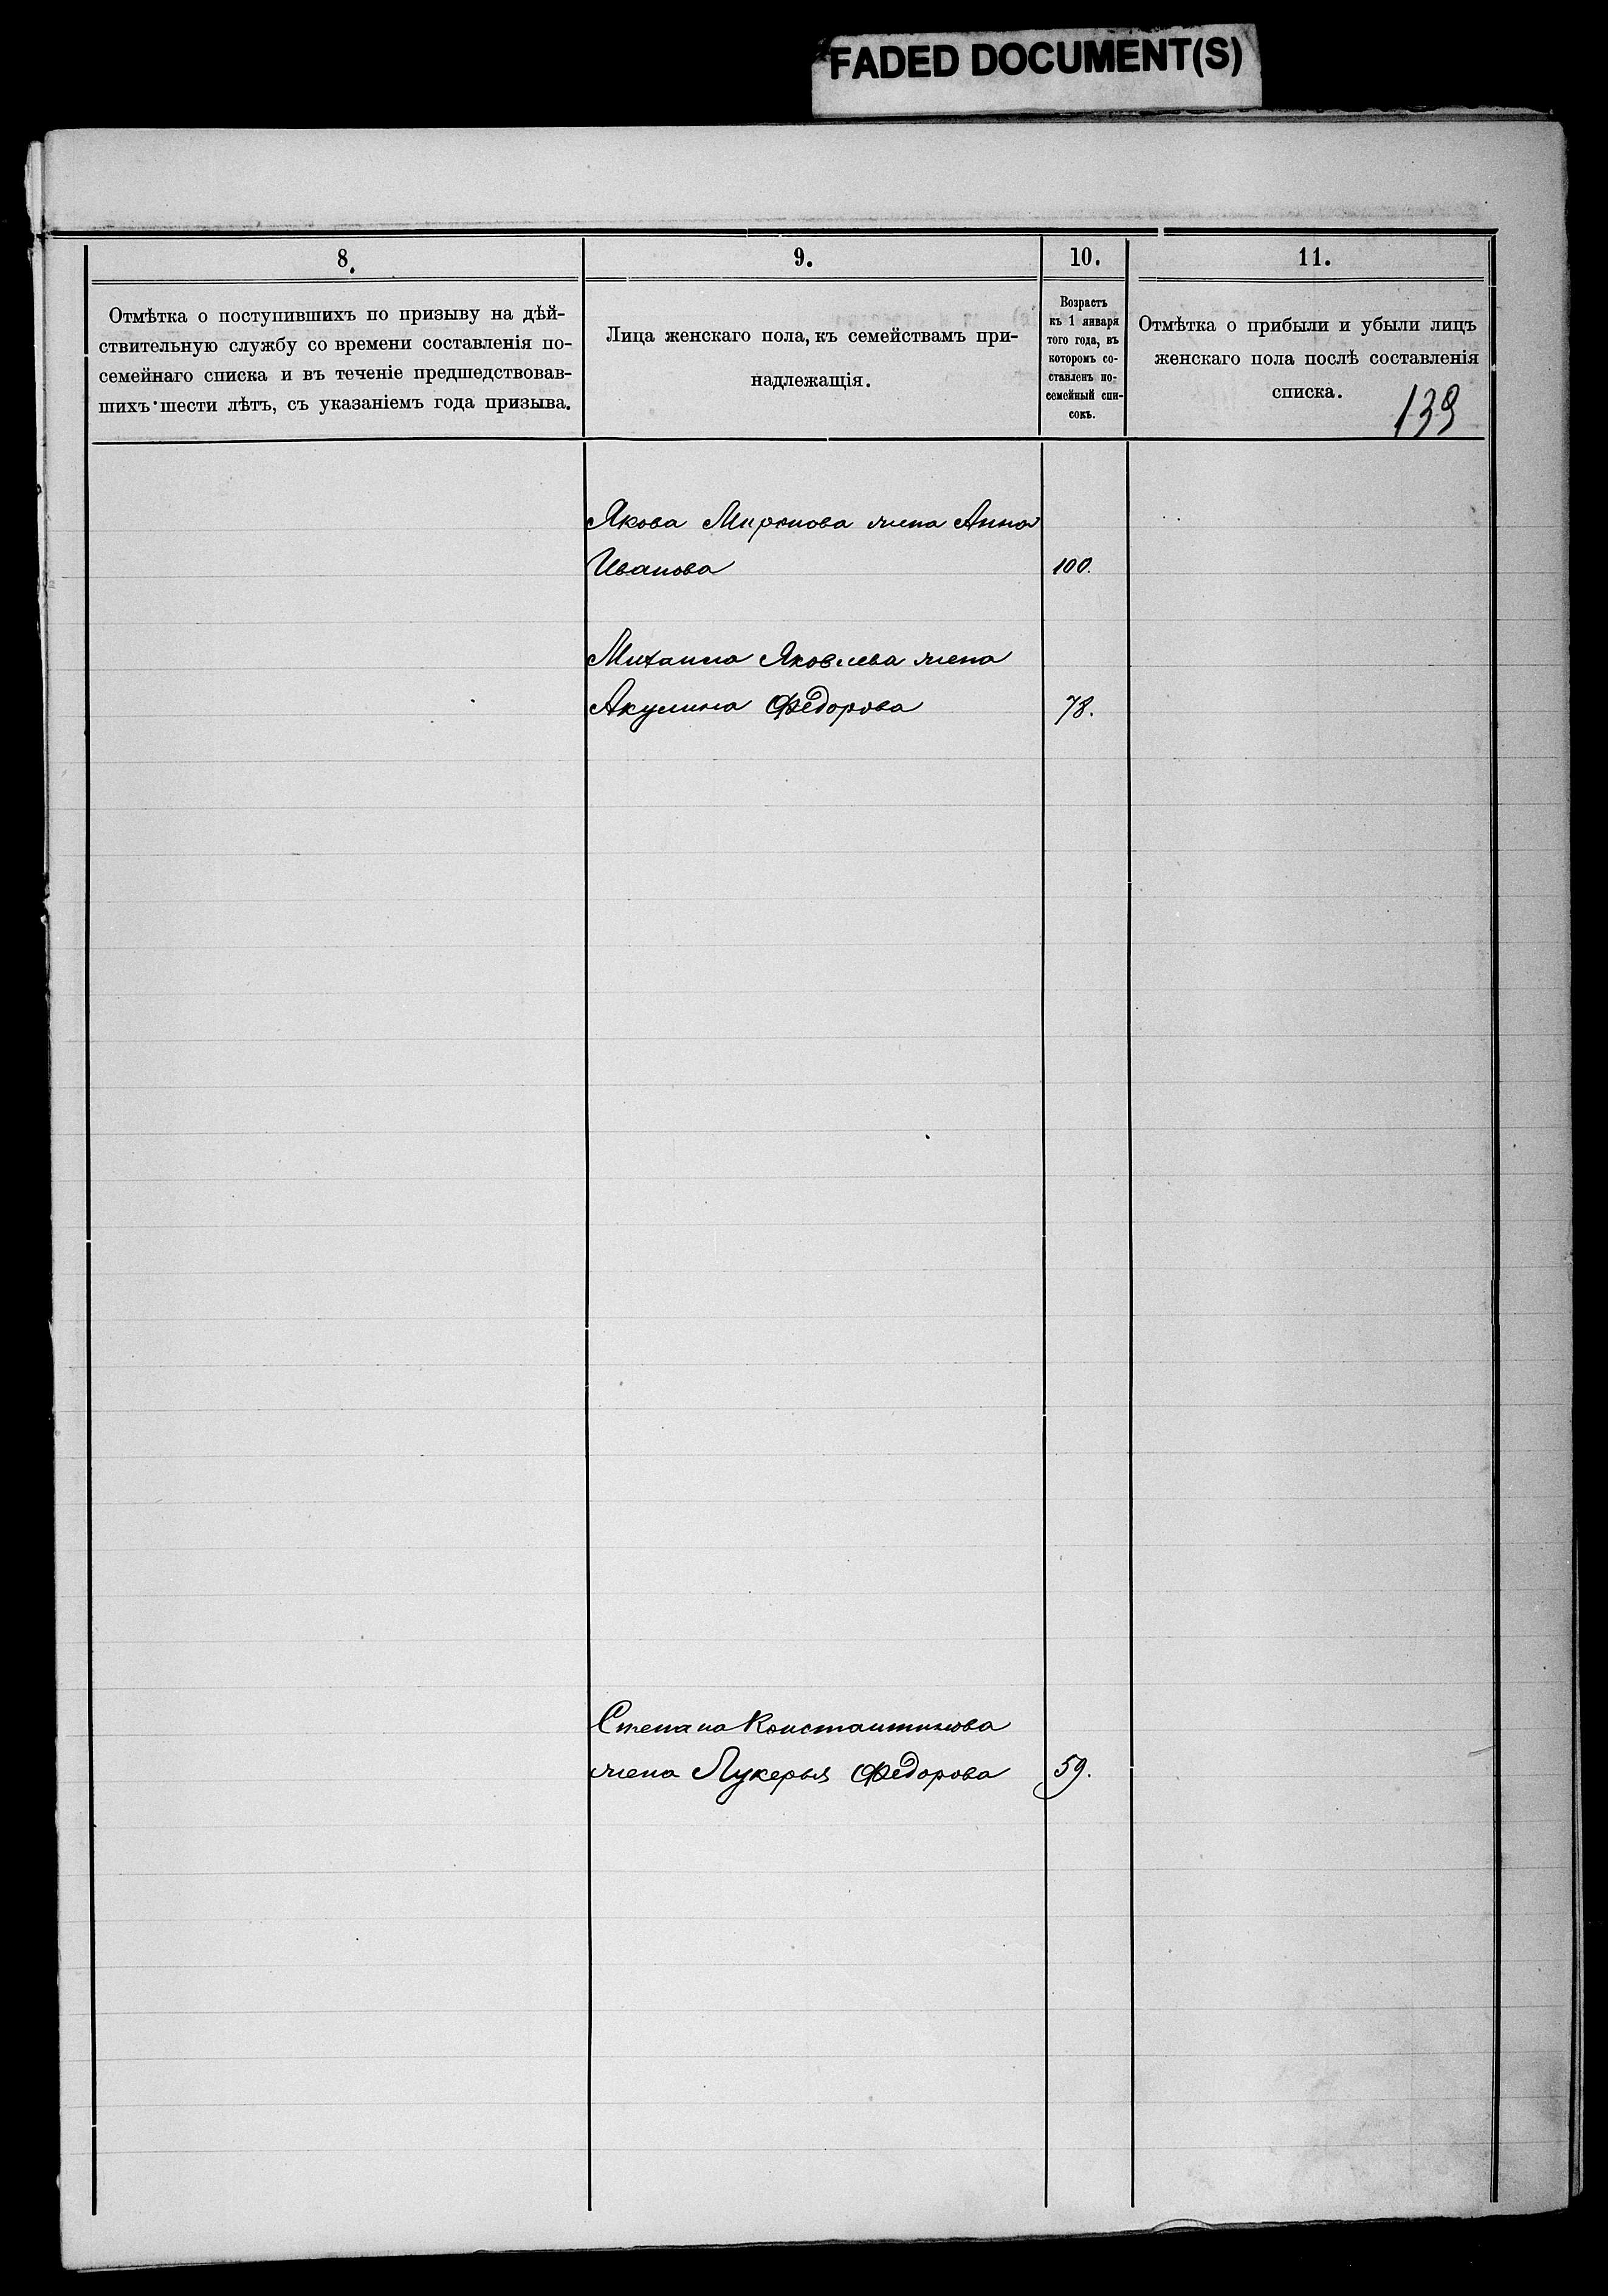 FADED DOCUMENT(S)
8.
9.
10.
11.
Отмѣтка о поступившихъ по призыву на дѣй-
ствительную службу со времени составленія по-
семейнаго списка и въ теченіе предшедствовав-
шихъ шести лѣтъ, съ указаніемъ года призыва.
Лица женскаго пола, къ семействамъ при-
надлежащія.
Возрастъ
къ 1 января
того года, въ
которомъ со-
ставленъ по-
семейный спи-
сокъ.
Отмѣтка о прибыли и убыли лицъ
женскаго пола послѣ составленія
списка.
139
Якова Миронова жена Анна
Иванова 100.
Михаила Яковлева жена
Акулина Федорова 78.
Степана Константинова
жена Лукерья Федорова 59.